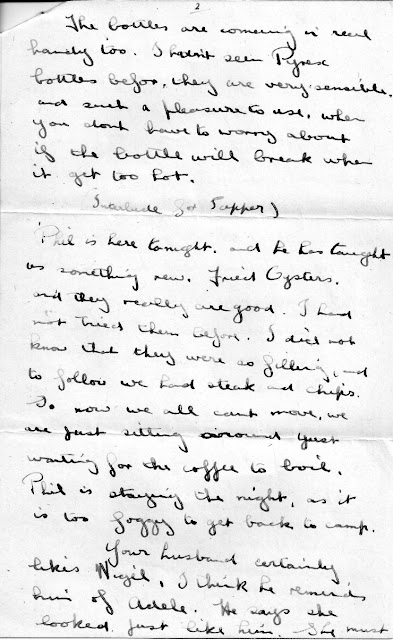 2
The bottles are comeing in real
handy too. I hadn't seen Pyrex
bottles befor, they are very sensible.
and such a pleasure to use, when
you dont have to worry about
if the bottle will break when
it get too hot.
(Interlude for Supper)
Phil is here tonight. and he has taught
us something new. Fried Oysters.
and they really are good. I had
not tried them befor. I did not
know that they were so filling, and
to follow we had steak and chips.
So now we all cant move, we
are just sitting around just
waiting for the coffee to boil.
Phil is staying the night, as it
is too foggy to get back to camp.
Your husband certainly
likes Nigel, I think he reminds
him of Adele. He says she
looked just like him. She must